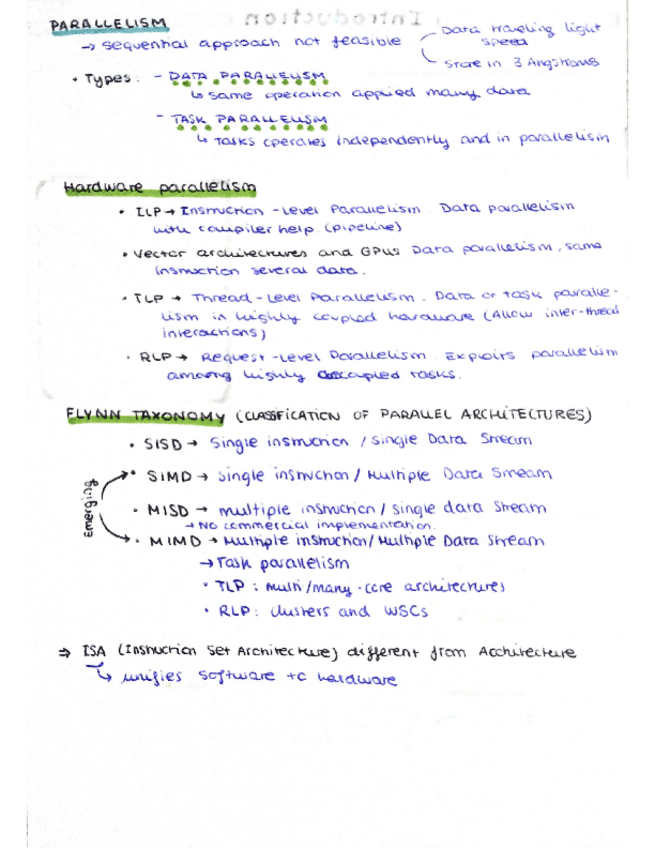 Introduction
PARALLELISM
→ sequential approach not feasible
Data traveling light
speed
Store in 3 Angstroms
• Types: - DATA PARALLELISM
↳ same operation applied many data
- TASK PARALLELISM
↳ Tasks operates independently and in parallelism
Hardware parallelism
• ILP → Instruction-Level Parallelism Data parallelism
with compiler help (pipeline)
• Vector architectures and GPUs Data parallelism, same
instruction several data.
• TLP → Thread-Level Parallelism. Data or task paralle-
lism in highly coupled hardware (Allow inter-thread
interactions)
• RLP → Request-Level Parallelism. Exploits parallelism
among highly occupied tasks.
FLYNN TAXONOMY (CLASSIFICATION OF PARALLEL ARCHITECTURES)
• SISD → Single instruction / Single Data Stream
Emerging
• SIMD → Single instruction / Multiple Data Stream
• MISD → multiple instruction / Single data Stream
→ No commercial implementation.
• MIMD → Multiple instruction / Multiple Data Stream
→ Task parallelism
• TLP : Multi/many-core architectures
• RLP: clusters and WSCs
⇒ ISA (Instruction Set Architecture) different from Architecture
↳ unifies software to hardware